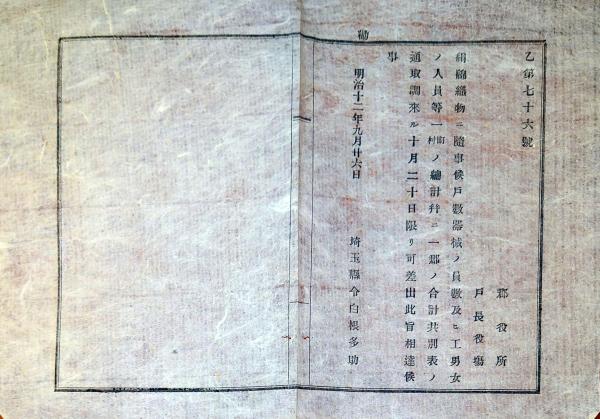 乙第七十六號
郡役所
戸長役塲
絹綿織物ニ隨事候戸數器械ノ員數及ヒ工男女
ノ人員等一町村ノ總計幷ニ一郡ノ合計共別表ノ
通取調來ル十月二十日限リ可差出此旨相達候
事
明治十二年九月廿六日
埼玉縣令白根多助